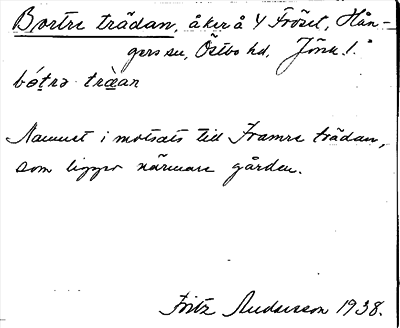 Bortre trädan, åker å 4 Frösel, Hån-
gers sn, Östbo hd, Jönk. l.
bó̱trə trä̀an
Namnet i motsats till Framre trädan,
som ligger närmare gården.
Fritz Andersson 1938.